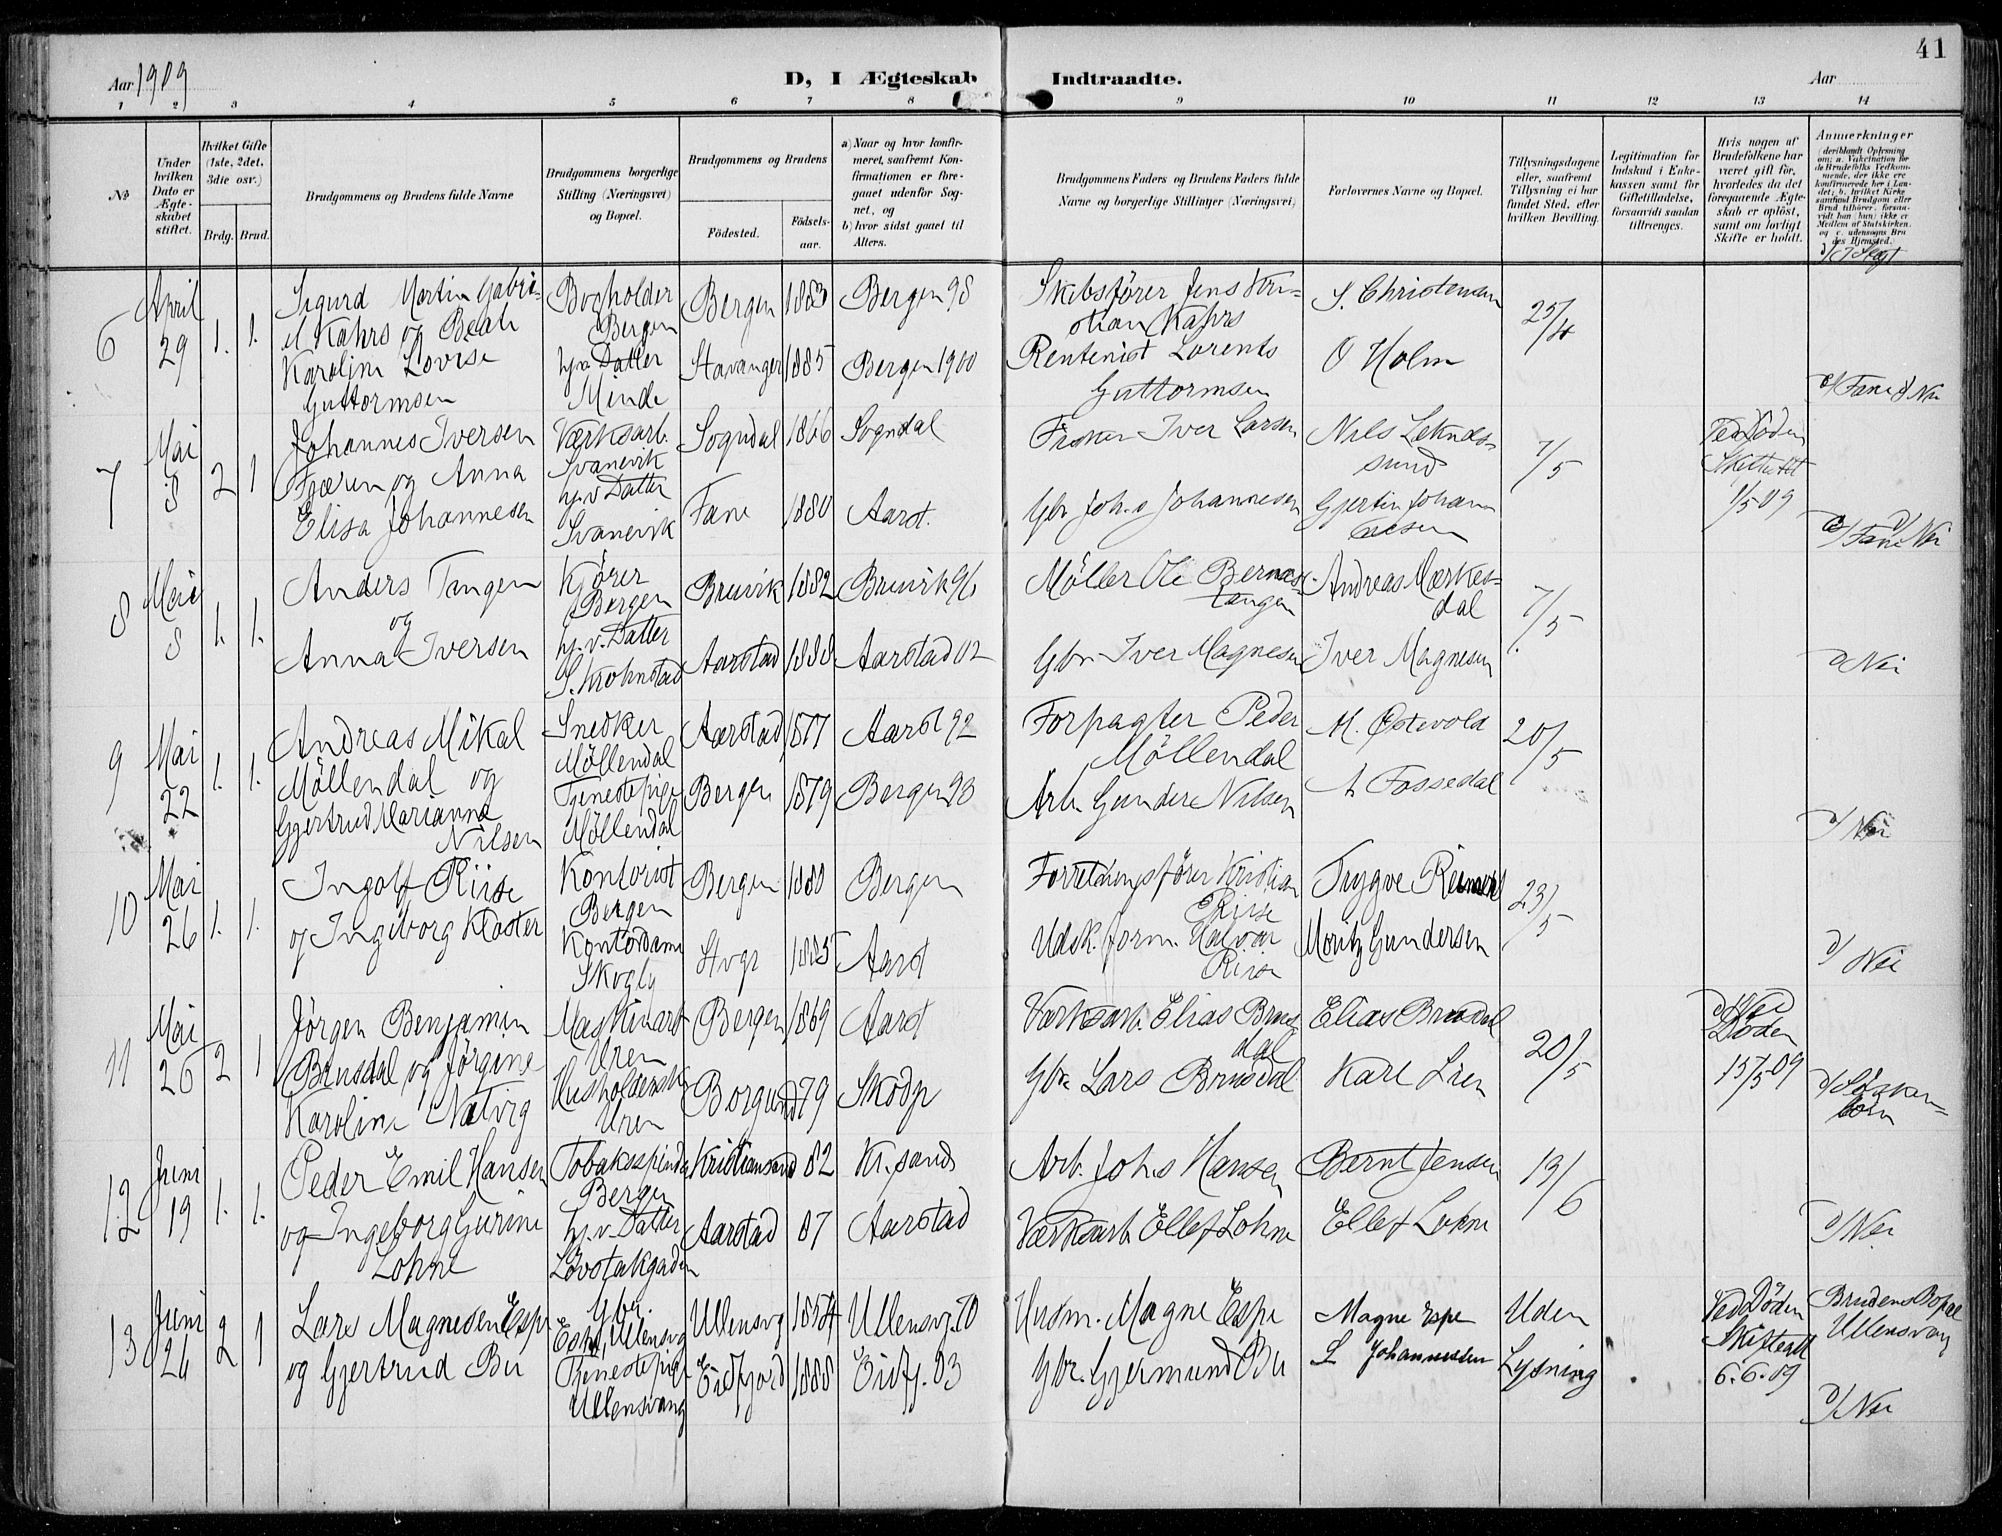 41
Aar 1909
D, I Ægteskab Indtraadte.
Aar
1 2 3 4 5 6 7 8 9 10 11 12 13 14
No
Under hvilken Dato er Ægteskabet stiftet.
Hvilket Gifte (1ste, 2det, 3die osv.)
Brdg. Brud.
Brudgommens og Brudens fulde Navne
Brudgommens borgerlige Stilling (Næringsvei) og Bopæl.
Brudgommens og Brudens
Födested.
Födsels-aar.
a) Naar og hvor konfirmeret, saafremt Konfirmationen er foregaaet udenfor Sognet, og
b) hvor sidst gaaet til Alters.
Brudgommens Faders og Brudens Faders fulde Navne og borgerlige Stillinger (Næringsvei)
Forlovernes Navne og Bopæl.
Tillysningsdagene eller, saafremt Tillysning ei har fundet Sted, efter hvilken Bevilling.
Legitimation for Indskud i Enkekassen samt for Giftetilladelse, forsaavidt saadan tiltrænges.
Hvis nogen af Brudefolkene har været gift før, hvorledes da det foregaaende Ægteskab er oplöst, samt om lovligt Skifte er holdt.
Anmerkninger
6 April 29 1. 1.
Sigurd Martin Gabri-
el Kahrs og Beate
Karoline Lovise
Guttormsen
Bogholder
Bergen
hjv Datter
Minde
Bergen 1883 Bergen 98
Stavanger 1885 Bergen 1900
Skibsfører Jens Kri-
stian Kahrs
Rentenist Lorents
Guttormsen
S. Christensen
O Holm
25/4
c/ Fane d/ Nei
7 Mai 8 2 1
Johannes Iversen
Fjæren og Anna
Elisa Johannesen
Værksarb.
Svanevik
hj.v Datter
Svanevik
Sogndal 1866 Sogndal
Fane 1880 Aarst.
Fisker Iver Larsen
Gbr Johs Johannesen
Nils
sund
Gjertin Johan
nesen
7/5
Ved Døden
1/5 09
c/ Fane d/ Nei
8 Mai 8 1. 1.
Anders Tangen
og
Anna Iversen
Kjører
Bergen
hj.v. Datter
S. Krohnstad
Brevik 1882 Brevik 96
Aarstad 1888 Aarstad 02
Møller Ole
Tangen
Gbr Iver Magnesen
Andreas Mærkes-
dal
Iver Magnesen
7/5
d/ Nei
9 Mai 22 1. 1.
Andreas Mikal
Møllendal og
Gjertrud Marianne
Nilsen
Snedker
Møllendal
Tjenestepige
Møllendal
Aarstad 1877 Aarst 92
Bergen 1879 Bergen 93
Forpagter Peder
Møllendal
Arb. Gunder Nilsen
M. Østevold
A Fossedal
20/5
d/ Nei
10 Mai 26 1. 1.
Ingolf Riise
og Ingeborg Kloster
Kontorist
Bergen
Kontordame
Skogly
Bergen 1880 Bergen
Stvgr 1885 Aarst
Forretningsfører Kristian
Riise
Udsk.form. Halvor
Riise
Trygve Reimers
Moritz Gundersen
23/5
d/ Nei
11 Mai 26 2 1
Jørgen Benjamin
Brusdal og Jørgine
Karoline Natvig
Maskinarb
Uren
Husholderske
Uren
Bergen 1869 Aarst
Borgund 79 Skodje
Værksarb. Elias Brus
dal
Gbr. Lars Brusdal
Elias Brusdal
Karl Lien
20/5
Døden
15/5 09
d/ Søsken-
børn
12 Juni 19 1. 1.
Peder Emil Hansen
og Ingeborg Gurine
Lohne
Tobaksspinder
Bergen
hj.v. Datter
Løvstakgaden
Kristiansand 82 Kr.sand
Aarstad 87 Aarstad
Arb. Johs Hansen
Værksarb. Ellef Lohne
Bernt Jensen
Ellef Lohne
19/6
d/ Nei
13 Juni 24 2 1
Lars Magnesen Espe
og Gjertrud Bu
Gbr.
Espe, Ullensvg
Tjenestepige
Ullensvang
Ullensvg 1854 Ullensvg. 70
Eidfjord 1888 Eidfj. 03
Husm. Magne Espe
Gbr. Gjermund Bu
Magne Espe
L Johannessen
Uden
Lysning
Ved Døden
Skifteatt
6.6.09
Brudens Bopæl
Ullensvang
d/ Nei